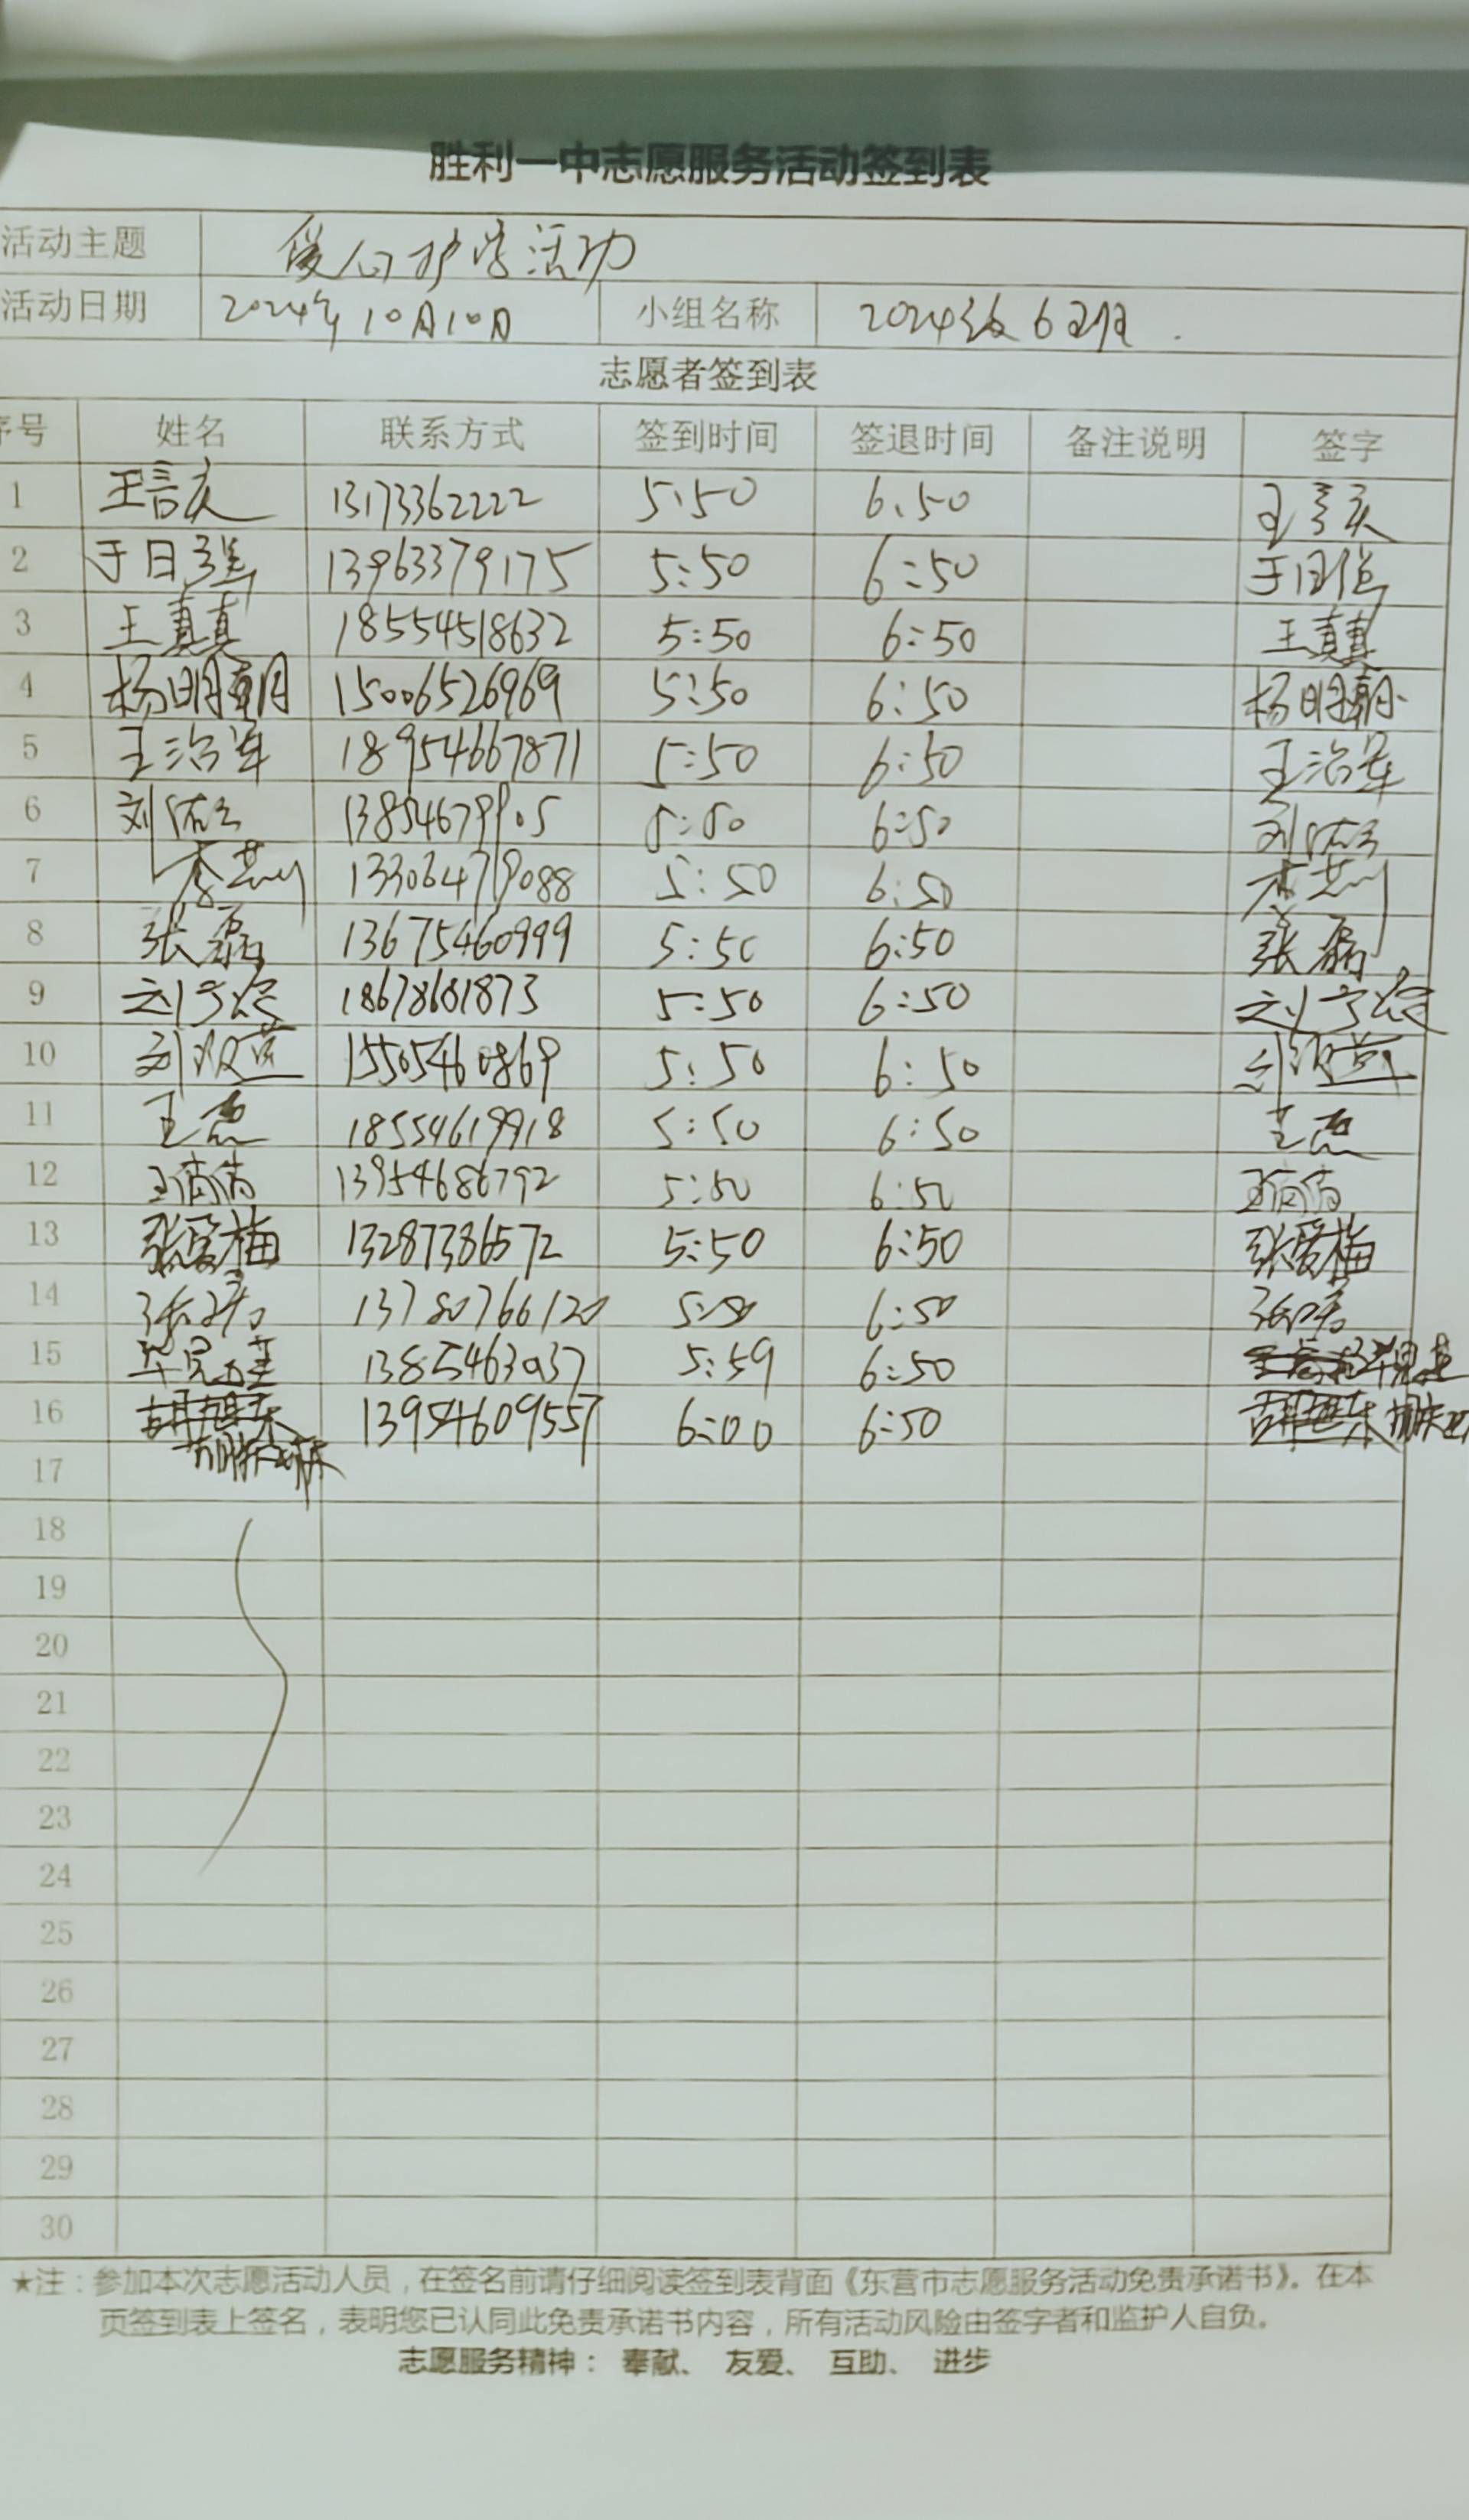 胜利一中志愿服务活动签到表
活动主题 爱心护学活动
活动日期 2024年10月10日 小组名称 2024级6班.
志愿者签到表
序号 姓名 联系方式 签到时间 签退时间 备注说明 签字
1 王言庆 13173362222 5:50 6:50 王言庆
2 于日强 13963379175 5:50 6:50 于日强
3 王真真 18554518632 5:50 6:50 王真真
4 杨明朝 15006526969 5:50 6:50 杨明朝
5 王治军 18954667871 5:50 6:50 王治军
6 刘 5:50 6:50 刘
7 13306479088 5:50 6:50
8 张磊 13675460999 5:50 6:50 张磊
9 刘 18678681873 5:50 6:50 刘
10 刘 15505460869 5:50 6:50 刘
11 王磊 18554619918 5:50 6:50 王磊
12 王倩倩 13954686792 5:50 6:50 王倩倩
13 张爱梅 13287386572 5:50 6:50 张爱梅
14 张 13780766120 5:50 6:50 张
15 5:59 6:50
16 13954609557 6:00 6:50
17
18
19
20
21
22
23
24
25
26
27
28
29
30
★注：参加本次志愿活动人员，在签名前请仔细阅读签到表背面《东营市志愿服务活动免责承诺书》。在本
页签到表上签名，表明您已认同此免责承诺书内容，所有活动风险由签字者和监护人自负。
志愿服务精神： 奉献、 友爱、 互助、 进步